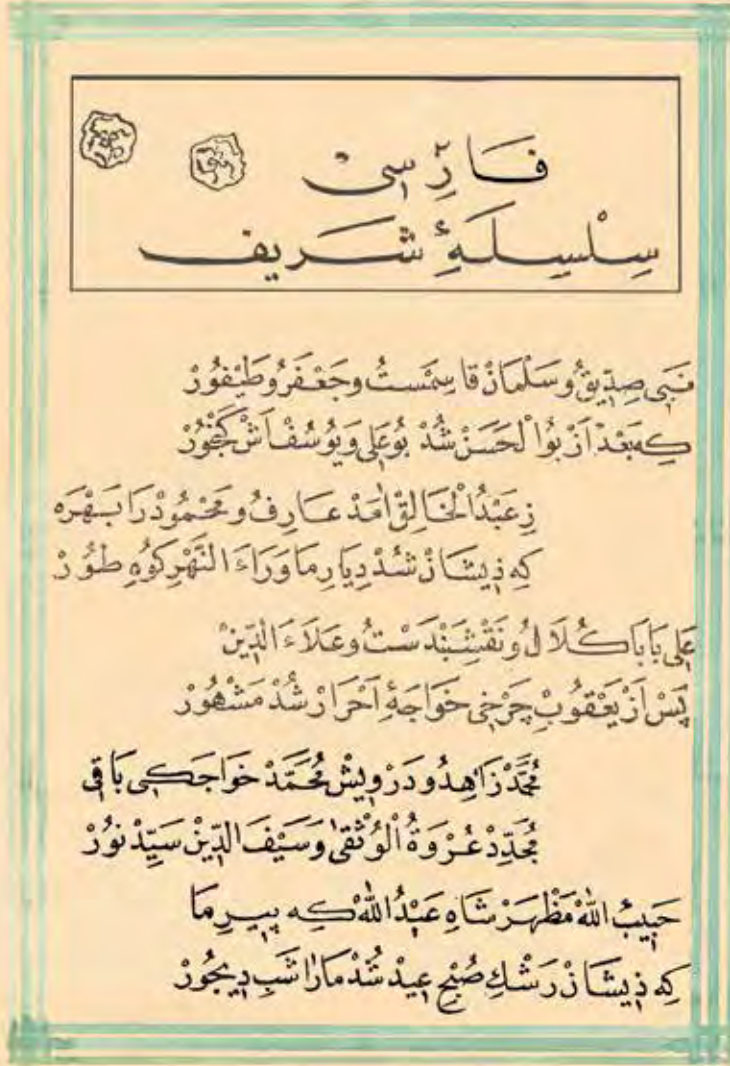 فَارِسِیْ
سِلْسِلَهِٔ شَرِيف
نَبِی صِدِّيقُ و سَلْمَانْ قَاسِمَسْتُ و جَعْفَرُ و طَيْفُورْ
كِه بَعْدْ اَزْ بُوالْحَسَنْ شُدْ بُوعَلِی وَ يُوسُفْ اَشْ گَنْجُورْ
زِ عَبْدُالْخَالِقْ اٰمَدْ عَارِفُ و مَحْمُودْ رَا بَهْرَه
كِه زِيشَانْ شُدْ دِيَارِ مَاوَرَاءَ النَّهْرِ كُوهِ طُورْ
عَلِی بَابَا كُلَالُ و نَقْشِبَنْدَسْتُ و عَلَاءَ الدِّينْ
پَسْ اَزْ يَعْقُوبِ چَرْخِی خَوَاجَهِٔ اَحْرَارْ شُدْ مَشْهُورْ
مُحَمَّدْ زَاهِدُ و دَرْوِيشْ مُحَمَّدْ خَواجَكِی بَاقِی
مُجَدِّدْ عُرْوَةُ الْوُثْقٰی وَ سَيْفَ الدِّينْ سَيِّدْ نُورْ
حَبِيبُ اللّٰهْ مَظْهَرْ شَاهِ عَبْدُاللّٰهْ كِه پِيرِ مَا
كِه زِيشَانْ رَشْكِ صُبْحِ عِيدْ شُدْ مَارَا شَبِ دِيجُورْ